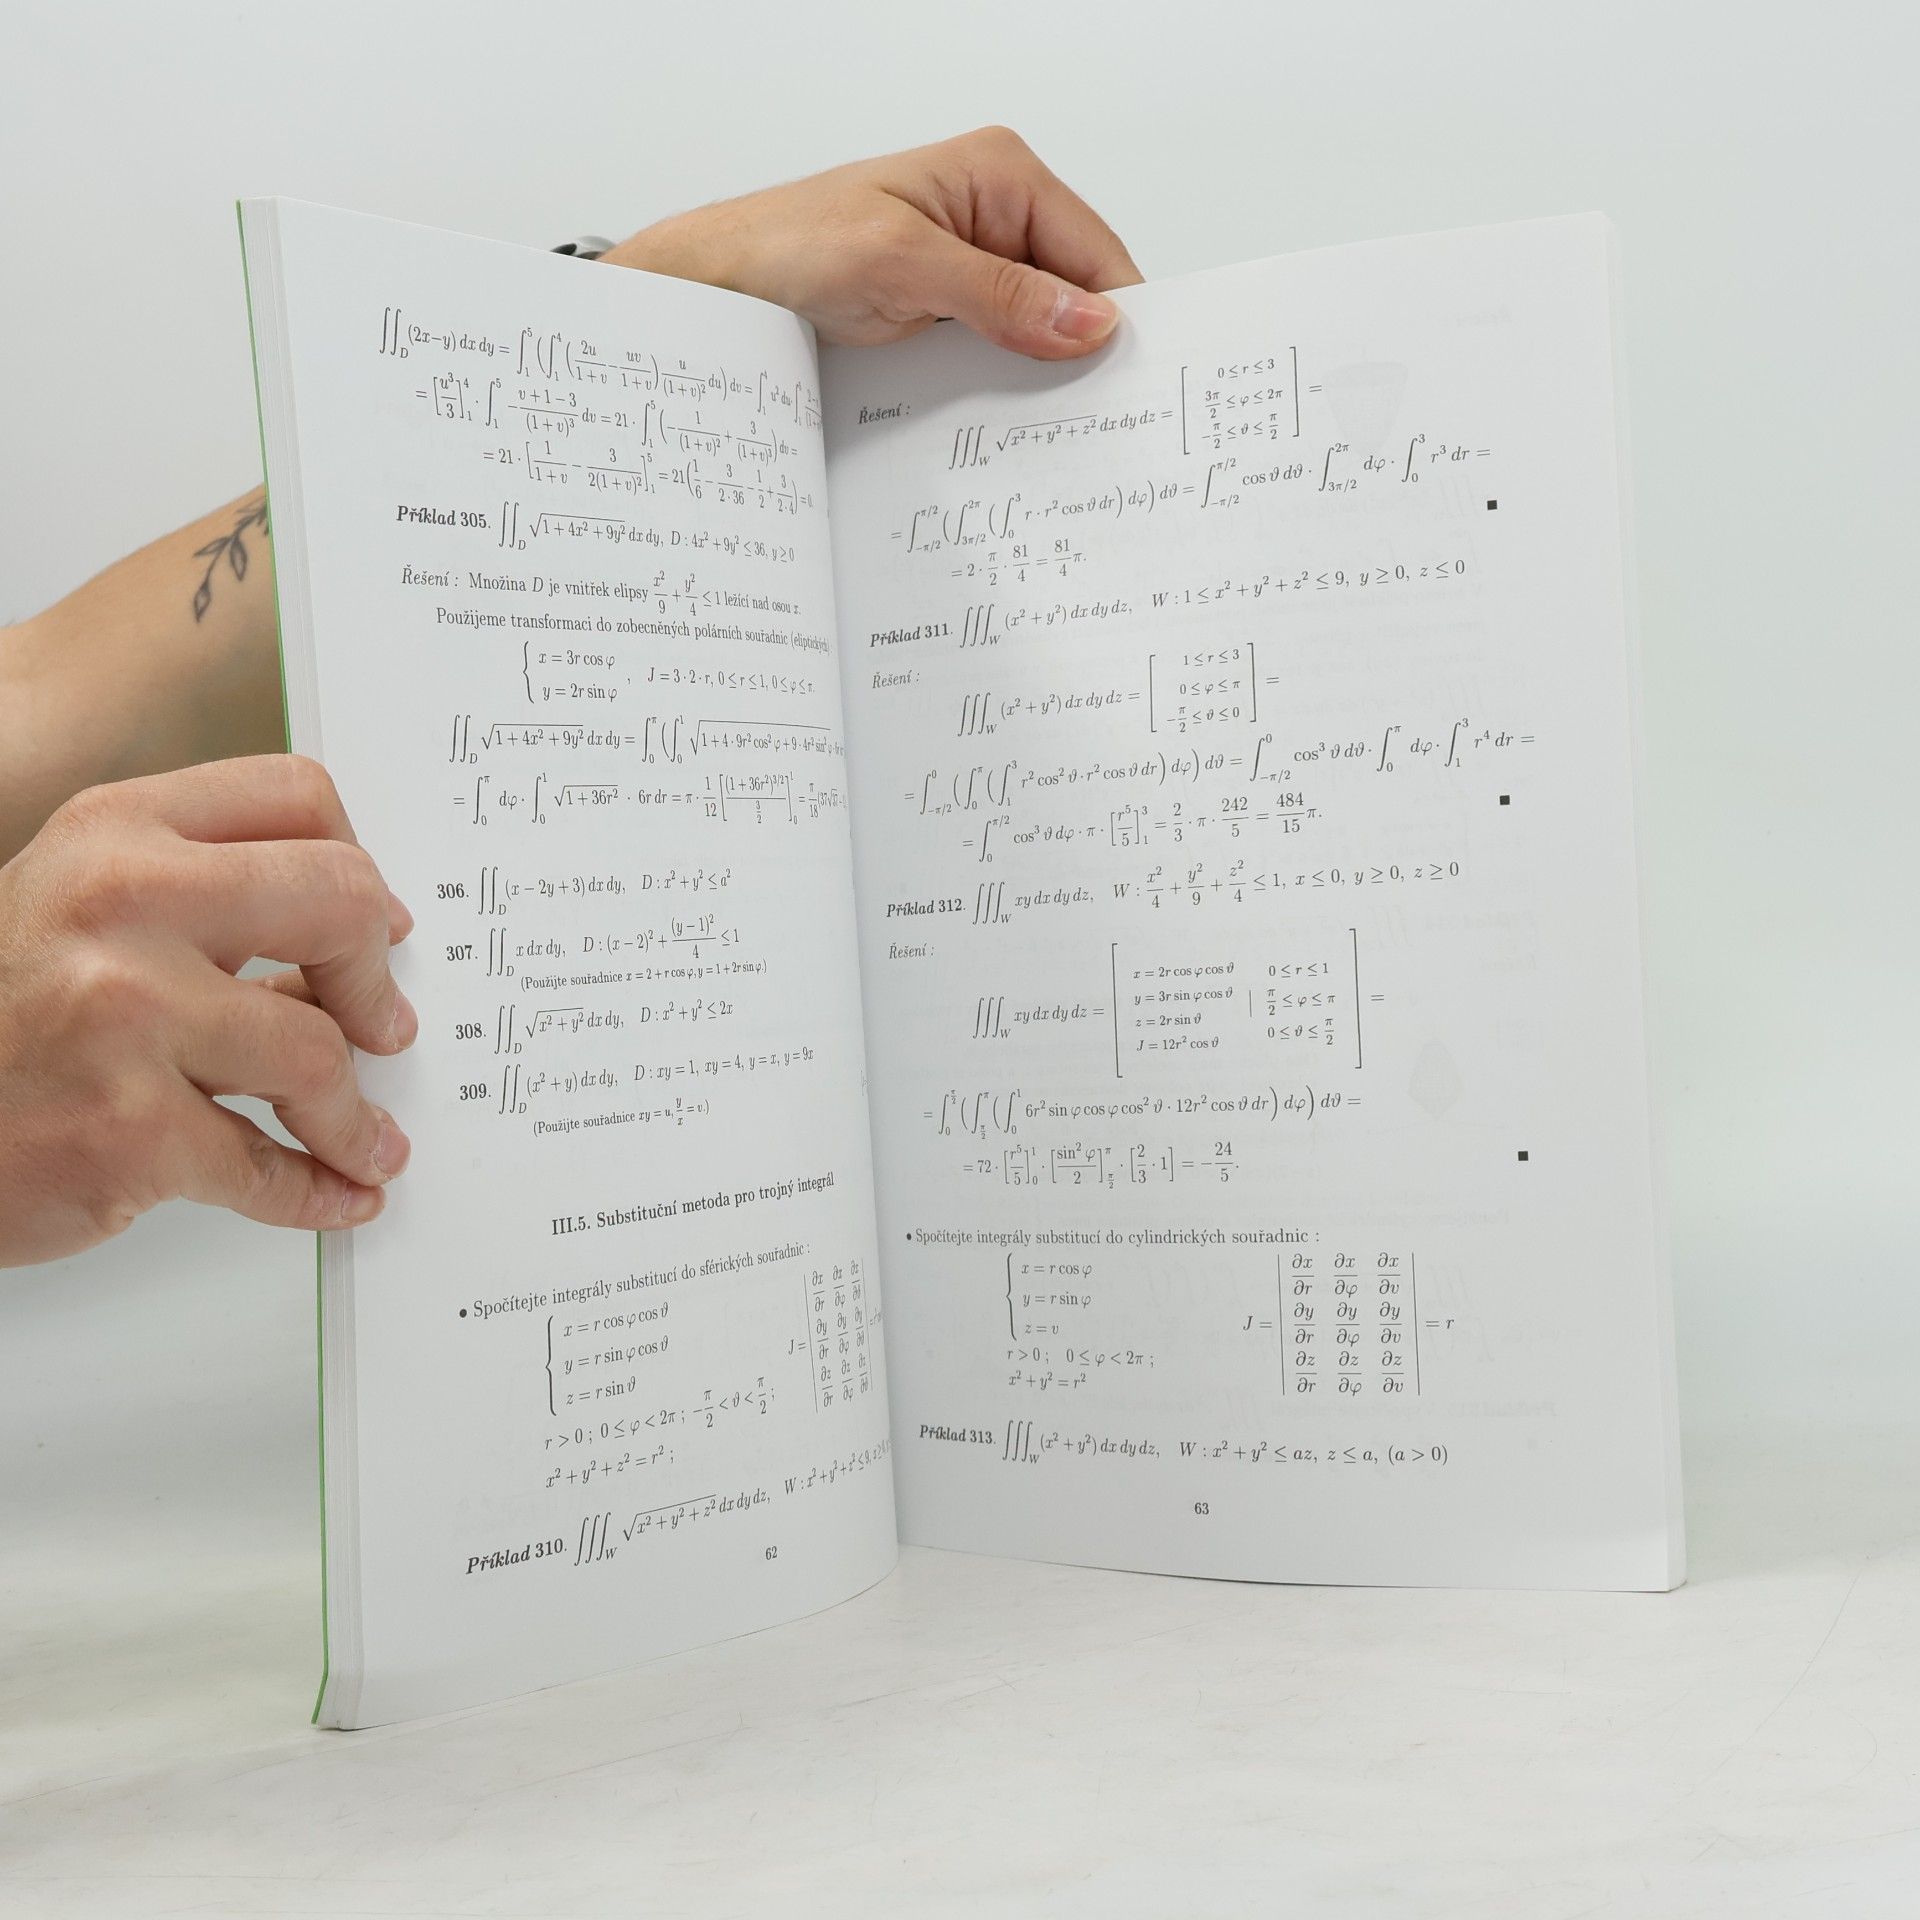 ∬_D (2x−y) dx dy = ∫_1^5 (∫_1^4 (2u/(1+v) − uv/(1+v)) u/(1+v)² du) dv = ∫_1^4 u² du · ∫_1^5
= [u³/3]_1^4 · ∫_1^5 − (v+1−3)/(1+v)³ dv = 21 · ∫_1^5 (−1/(1+v)² + 3/(1+v)³) dv =
= 21 · [1/(1+v) − 3/(2(1+v)²)]_1^5 = 21(1/6 − 3/(2·36) − 1/2 + 3/(2·4)) = 0.
Příklad 305. ∬_D √(1+4x²+9y²) dx dy, D : 4x²+9y² ≤ 36, y ≥ 0
Řešení : Množina D je vnitřek elipsy x²/9 + y²/4 ≤ 1 ležící nad osou x.
Použijeme transformaci do zobecněných polárních souřadnic (eliptických)
{ x = 3r cos φ
y = 2r sin φ , J = 3·2·r, 0 ≤ r ≤ 1, 0 ≤ φ ≤ π.
∬_D √(1+4x²+9y²) dx dy = ∫_0^π (∫_0^1 √(1+4·9r² cos² φ + 9·4r² sin² φ · 6r
= ∫_0^π dφ · ∫_0^1 √(1+36r²) · 6r dr = π · 1/12 [(1+36r²)^{3/2} / (3/2)]_0^1 = π/18 (37√37 −
306. ∬_D (x − 2y + 3) dx dy, D : x² + y² ≤ a²
307. ∬_D x dx dy, D : (x − 2)² + (y − 1)²/4 ≤ 1
(Použijte souřadnice x = 2 + r cos φ, y = 1 + 2r sin φ.)
308. ∬_D √(x² + y²) dx dy, D : x² + y² ≤ 2x
309. ∬_D (x² + y) dx dy, D : xy = 1, xy = 4, y = x, y = 9x
(Použijte souřadnice xy = u, y/x = v.)
III.5. Substituční metoda pro trojný integrál
• Spočítejte integrály substitucí do sférických souřadnic :
{ x = r cos φ cos ϑ
y = r sin φ cos ϑ J = | ∂x/∂r ∂x/∂φ ∂x/∂ϑ ; ∂y/∂r ∂y/∂φ ∂y/∂ϑ ; ∂z/∂r ∂z/∂φ ∂z/∂ϑ | =
z = r sin ϑ
r > 0 ; 0 ≤ φ < 2π ; −π/2 < ϑ < π/2 ;
x² + y² + z² = r² ;
Příklad 310. ∭_W √(x² + y² + z²) dx dy dz, W : x² + y² + z² ≤ 9, x ≥ 0,
62
Řešení :
∭_W √(x² + y² + z²) dx dy dz = [ 0 ≤ r ≤ 3 ; 3π/2 ≤ φ ≤ 2π ; −π/2 ≤ ϑ ≤ π/2 ] =
= ∫_{−π/2}^{π/2} (∫_{3π/2}^{2π} (∫_0^3 r · r² cos ϑ dr) dφ) dϑ = ∫_{−π/2}^{π/2} cos ϑ dϑ · ∫_{3π/2}^{2π} dφ · ∫_0^3 r³ dr =
= 2 · π/2 · 81/4 = 81/4 π. ■
Příklad 311. ∭_W (x² + y²) dx dy dz, W : 1 ≤ x² + y² + z² ≤ 9, y ≥ 0, z ≤ 0
Řešení :
∭_W (x² + y²) dx dy dz = [ 1 ≤ r ≤ 3 ; 0 ≤ φ ≤ π ; −π/2 ≤ ϑ ≤ 0 ] =
= ∫_{−π/2}^0 (∫_0^π (∫_1^3 r² cos² ϑ · r² cos ϑ dr) dφ) dϑ = ∫_{−π/2}^0 cos³ ϑ dϑ · ∫_0^π dφ · ∫_1^3 r⁴ dr =
= ∫_0^{π/2} cos³ ϑ dφ · π · [r⁵/5]_1^3 = 2/3 · π · 242/5 = 484/15 π. ■
Příklad 312. ∭_W xy dx dy dz, W : x²/4 + y²/9 + z²/4 ≤ 1, x ≤ 0, y ≥ 0, z ≥ 0
Řešení :
∭_W xy dx dy dz = [ x = 2r cos φ cos ϑ ; y = 3r sin φ cos ϑ ; z = 2r sin ϑ ; J = 12r² cos ϑ | 0 ≤ r ≤ 1 ; π/2 ≤ φ ≤ π ; 0 ≤ ϑ ≤ π/2 ] =
= ∫_0^{π/2} (∫_{π/2}^π (∫_0^1 6r² sin φ cos φ cos² ϑ · 12r² cos ϑ dr) dφ) dϑ =
= 72 · [r⁵/5]_0^1 · [sin² φ/2]_{π/2}^π · [2/3 · 1] = −24/5. ■
• Spočítejte integrály substitucí do cylindrických souřadnic :
{ x = r cos φ
y = r sin φ
z = v J = | ∂x/∂r ∂x/∂φ ∂x/∂v ; ∂y/∂r ∂y/∂φ ∂y/∂v ; ∂z/∂r ∂z/∂φ ∂z/∂v | = r
r > 0 ; 0 ≤ φ < 2π ;
x² + y² = r²
Příklad 313. ∭_W (x² + y²) dx dy dz, W : x² + y² ≤ az, z ≤ a, (a > 0)
63